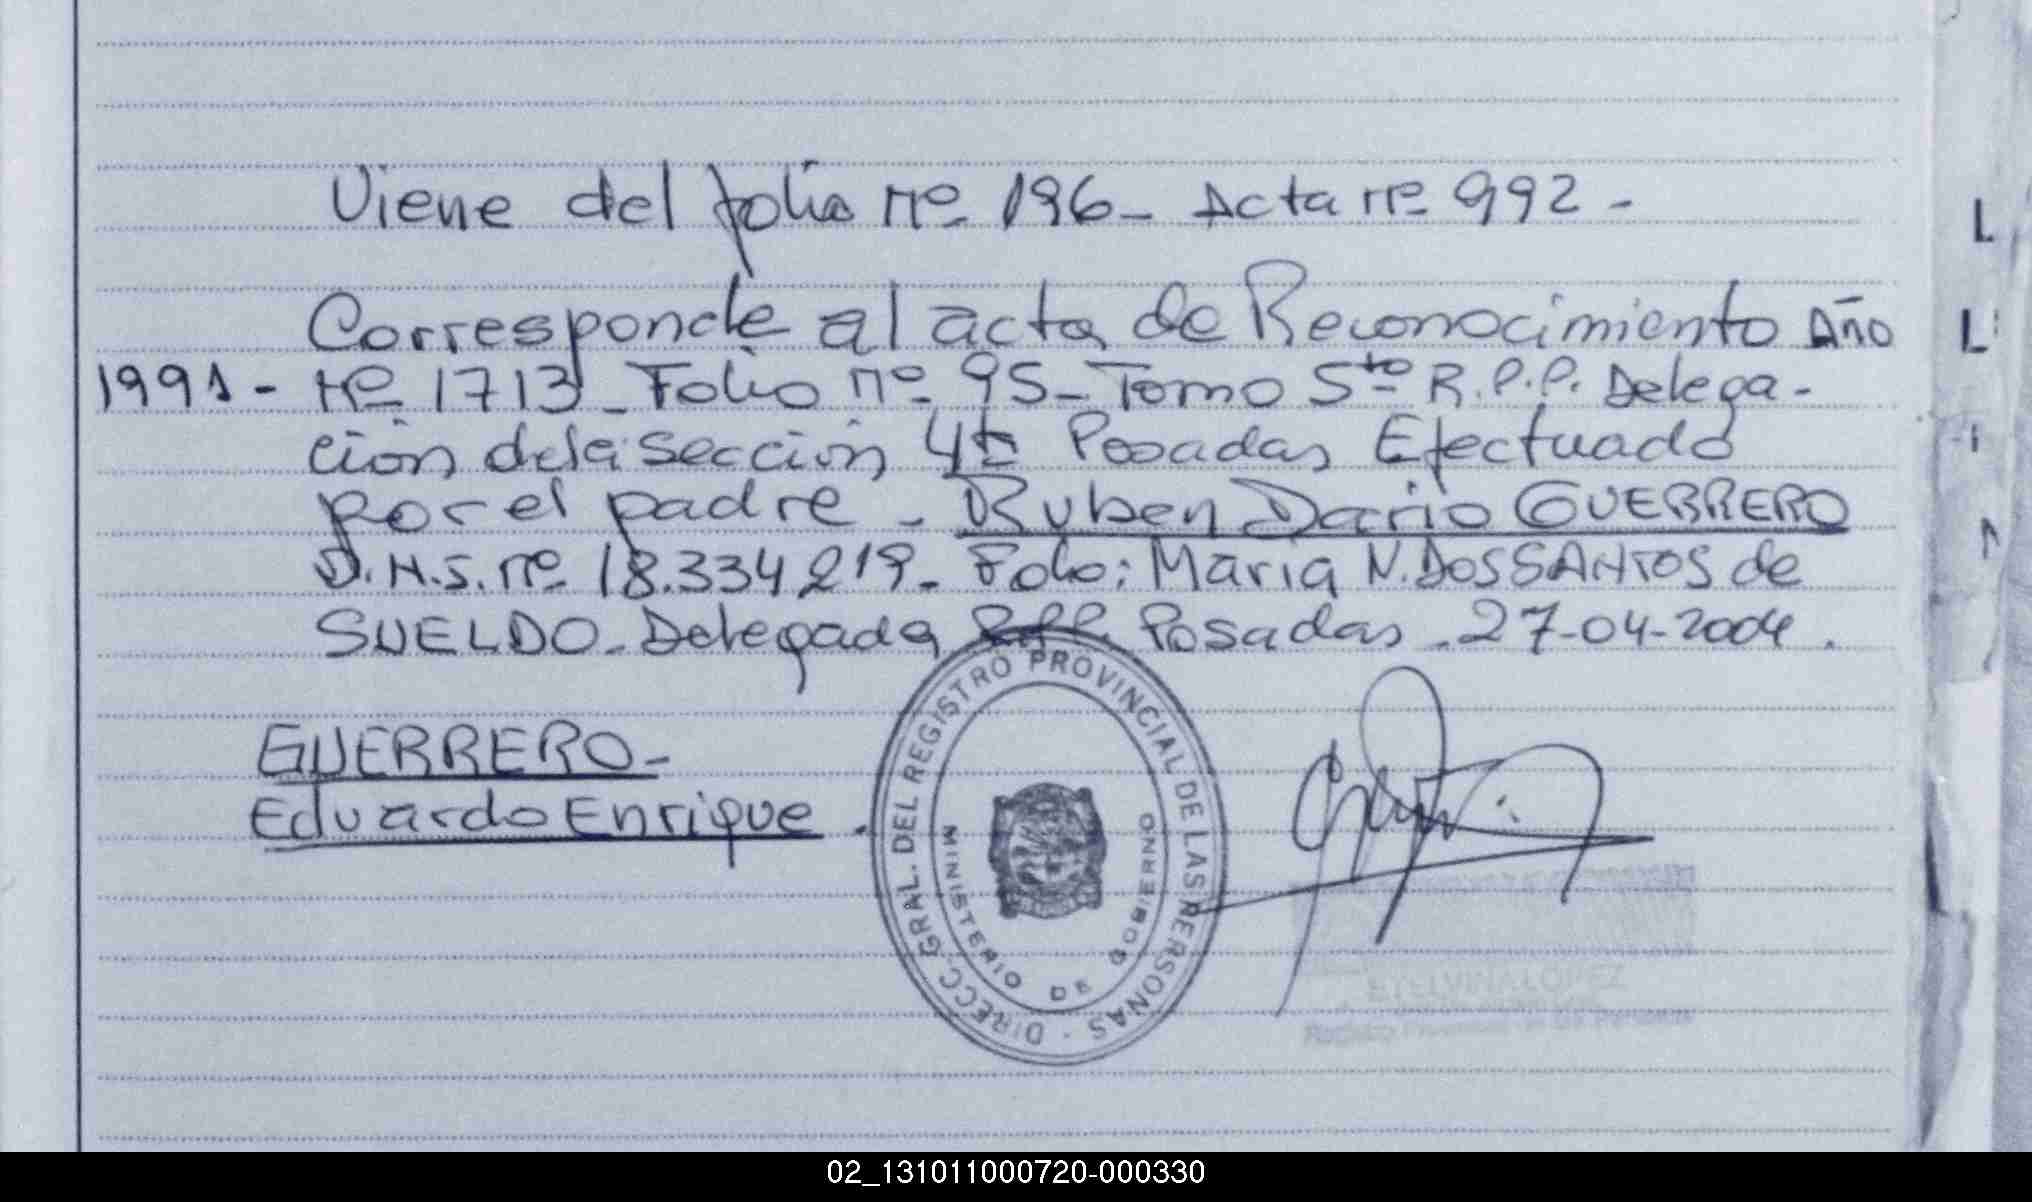 Viene del folio nº 196 - Acta nº 992 -
Corresponde al acta de Reconocimiento Año
1991 - Nº 1713 - Folio nº 95 - Tomo 5to R.P.P. Delega-
ción de la sección 4ta Posadas Efectuado
por el padre - Ruben Dario GUERRERO
D.N.S. nº 18.334.219 - Fdo: Maria N. DOS SANTOS de
SUELDO - Delegada R.P.P. Posadas - 27-04-2004.
GUERRERO -
Eduardo Enrique.
DIRECC. GRAL. DEL REGISTRO PROVINCIAL DE LAS PERSONAS -
MINISTERIO DE GOBIERNO
ETELVINA LOPEZ
Registro Provincial de las Personas
L
L
02_131011000720-000330